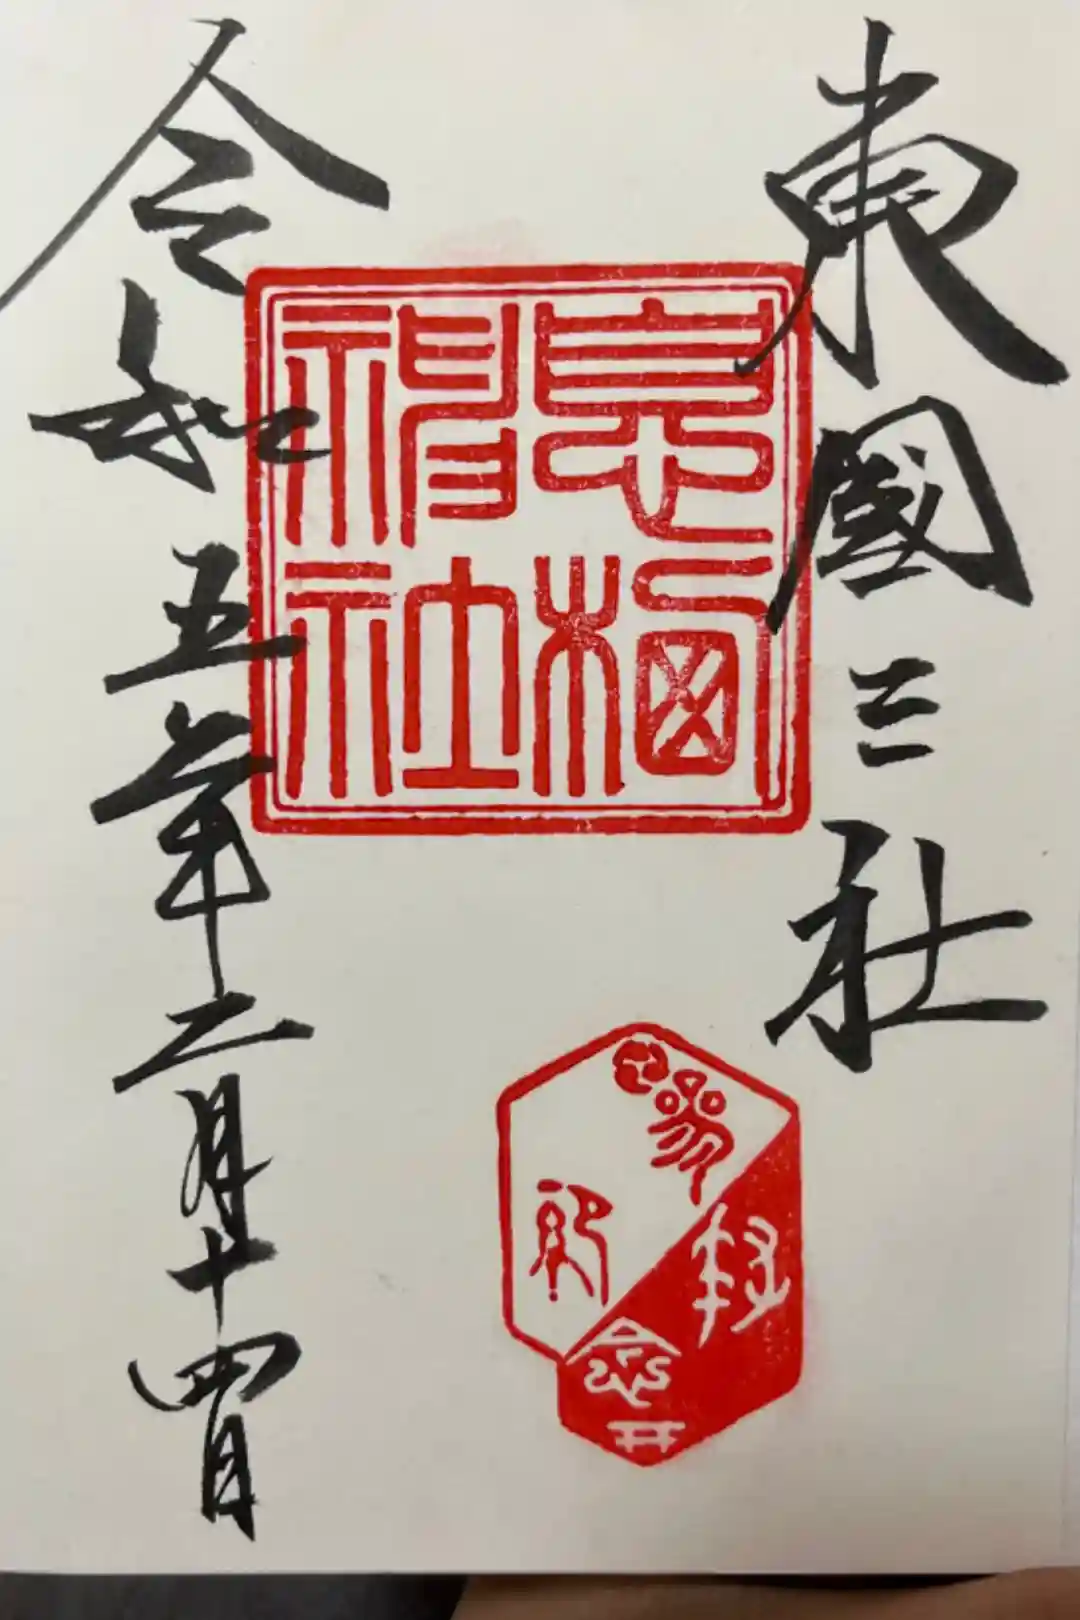 東國三社
息栖神社
令和五年二月十四日